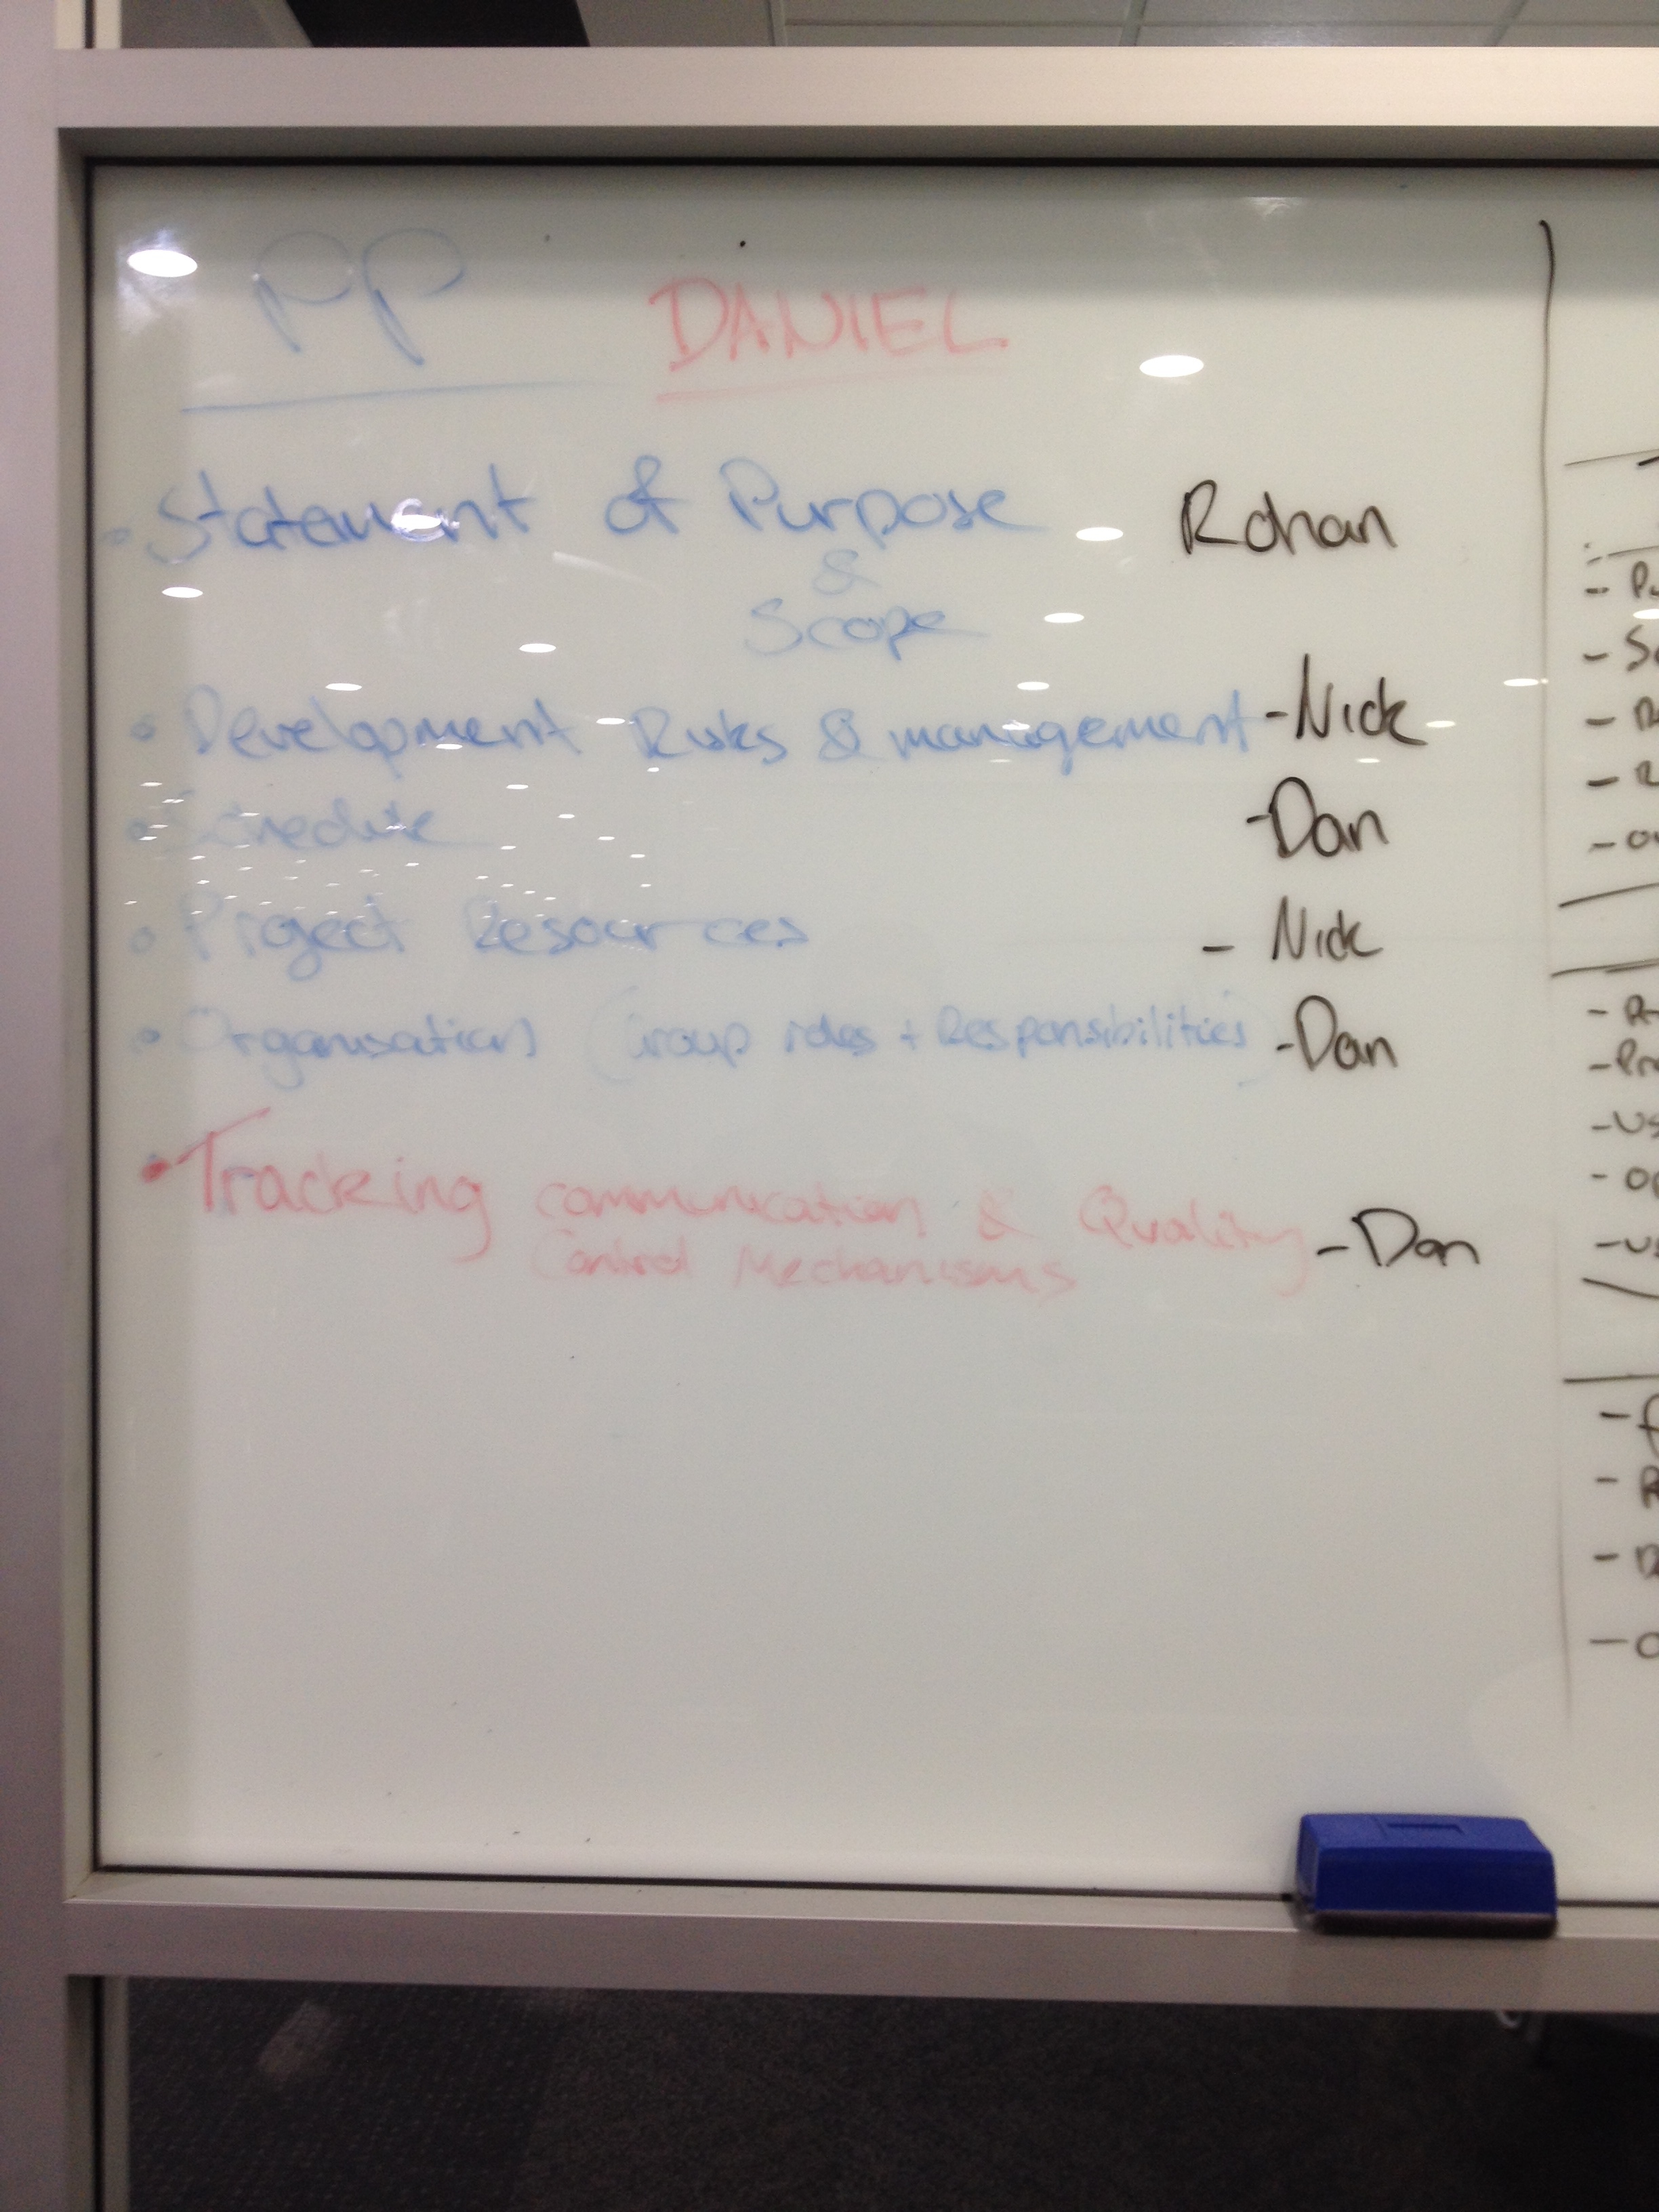 PP DANIEL
• Statement of Purpose Rohan
&
Scope
• Development Risks & management - Nick
• Schedule - Dan
• Project Resources - Nick
• Organisation (Group roles + Responsibilities) - Dan
• Tracking communication & Quality - Dan
Control Mechanisms